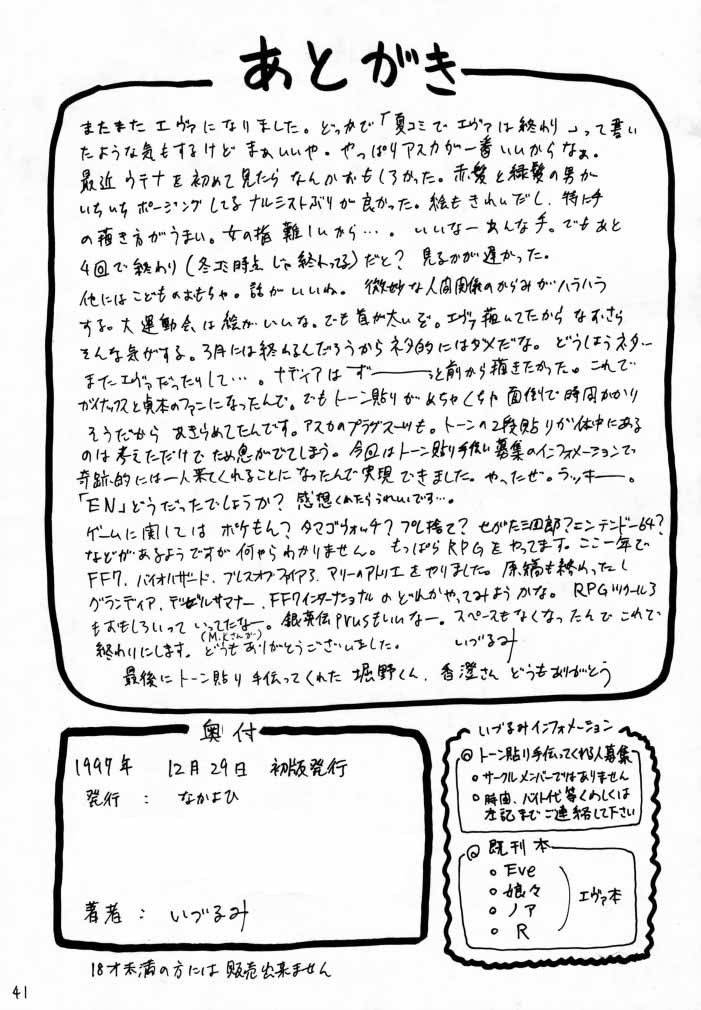 あとがき
またまた エヴァになりました。どっかで「夏コミで エヴァは終わり」って書い
たような気もするけど まぁいいや。やっぱりアスカが一番いいからなぁ。
最近 ウテナを初めて見たら なんかおもしろかった。赤髪と緑髪の男が
いちいち ポージングしてる ナルシストぶりが良かった。絵もきれいだし、特に手
の描き方がうまい。女の指 難しいから…。いいなーあんな手。でもあと
4回で終わり(冬コミ時点じゃ終わってる)だと? 見るのが遅かった。
他にはこどものおもちゃ。話がいいね。 微妙な人間関係のからみがハラハラ
する。大運動会は絵がいいな。でも首が太いぞ。エヴァ描いてたから なおさら
そんな気がする。3月には終わるんだろうからネタ的にはダメだな。 どうしようネター
またエヴァだったりして…。ナディアは ずーーーっと前から描きたかった。これで
ガイナックスと貞本のファンになったんで。でもトーン貼りがめちゃくちゃ 面倒で時間かかり
そうだから あきらめてたんです。アスカのプラグスーツも。トーンの2段貼りが体中にある
のは考えただけで ため息がでてしまう。今回はトーン貼り手伝い募集のインフォメーションで
奇跡的には一人来てくれることに なったんで実現 できました。やったぜ。ラッキー。
「EN」どうだったでしょうか? 感想くれたらうれしいです…。
ゲームに関しては ポケもん? タマゴウォッチ? プレ捨て? せがた三四郎?ニンテンドー64?
などがあるようですが何やらわかりません。もっぱら RPGをやってます。ここ一年で
FF7、バイオハザード、ブレスオブファイア3、マリーのアトリエをやりました。原稿も終わったし
グランディア、デビルサマナー、FF7インターナショナルのどれかやってみようかな。 RPGツクール3
もおもしろいって いってたなー。銀英伝Plusもいいなー。スペースもなくなったんで これで
(M.Kさんが)
終わりにします。どうもありがとうございました。 いづるみ
最後にトーン貼り 手伝ってくれた 堀野くん、香澄さん どうもありがとう
奥付
1997年 12月29日 初版発行
発行 : なかよひ
著者 : いづるみ
18才未満の方には 販売出来ません
いづるみインフォメーション
◎トーン貼り手伝ってくれる人募集
○サークルメンバーではありません
○時間、バイト代等くわしくは
左記まで ご連絡して下さい
◎既刊本
○Eve
○娘々
○ノア
○R
エヴァ本
41